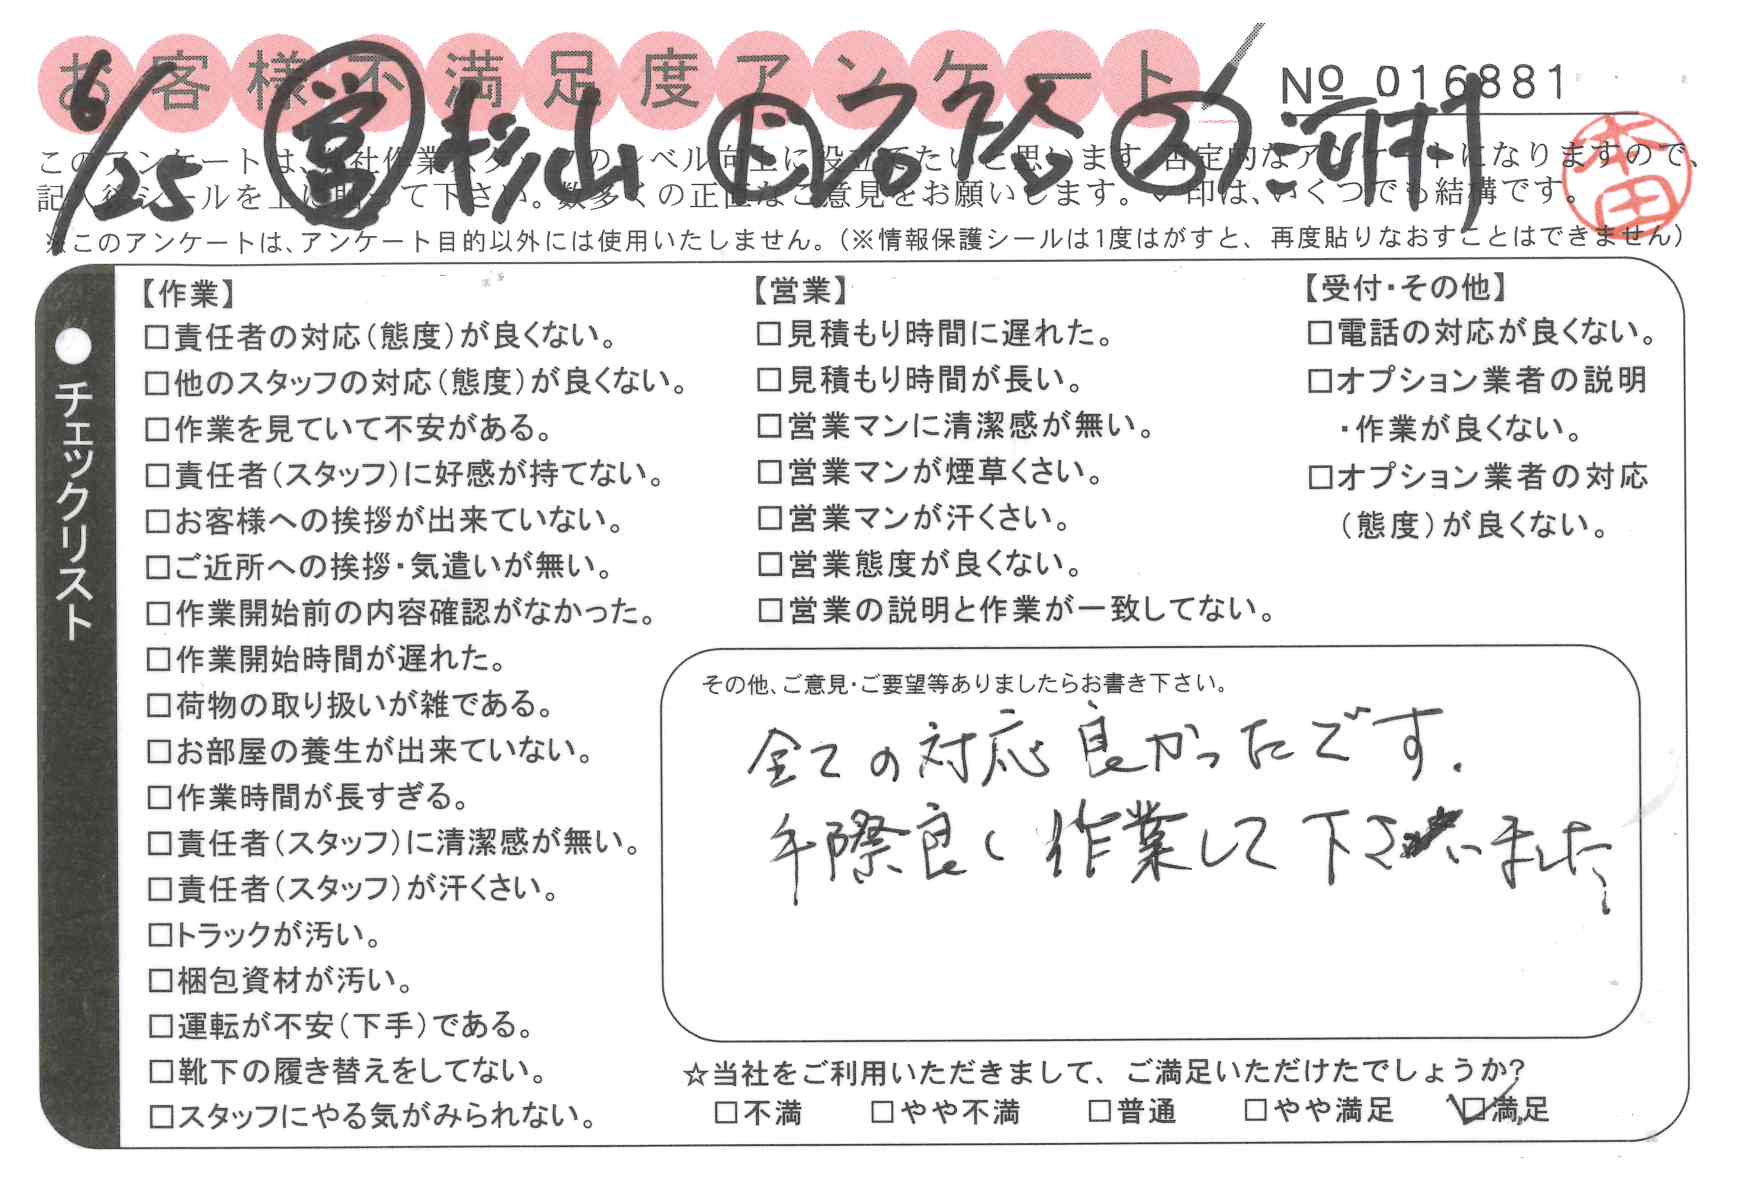 お客様不満足度アンケート
№ 016881
6/25 ㊂ 杉山
河村
本田
このアンケートは、当社作業スタッフのレベル向上に役立てたいと思います。否定的なアンケートになりますので、
記入後シールを上に貼って下さい。数多くの正直なご意見をお願いします。✓印は、いくつでも結構です。
※このアンケートは、アンケート目的以外には使用いたしません。(※情報保護シールは1度はがすと、再度貼りなおすことはできません)
●チェックリスト
【作業】
□責任者の対応(態度)が良くない。
□他のスタッフの対応(態度)が良くない。
□作業を見ていて不安がある。
□責任者(スタッフ)に好感が持てない。
□お客様への挨拶が出来ていない。
□ご近所への挨拶・気遣いが無い。
□作業開始前の内容確認がなかった。
□作業開始時間が遅れた。
□荷物の取り扱いが雑である。
□お部屋の養生が出来ていない。
□作業時間が長すぎる。
□責任者(スタッフ)に清潔感が無い。
□責任者(スタッフ)が汗くさい。
□トラックが汚い。
□梱包資材が汚い。
□運転が不安(下手)である。
□靴下の履き替えをしてない。
□スタッフにやる気がみられない。
【営業】
□見積もり時間に遅れた。
□見積もり時間が長い。
□営業マンに清潔感が無い。
□営業マンが煙草くさい。
□営業マンが汗くさい。
□営業態度が良くない。
□営業の説明と作業が一致してない。
【受付・その他】
□電話の対応が良くない。
□オプション業者の説明
・作業が良くない。
□オプション業者の対応
(態度)が良くない。
その他、ご意見・ご要望等ありましたらお書き下さい。
全ての対応良かったです.
手際良く作業して下さいました。
☆当社をご利用いただきまして、ご満足いただけたでしょうか?
□不満 □やや不満 □普通 □やや満足 ☑満足